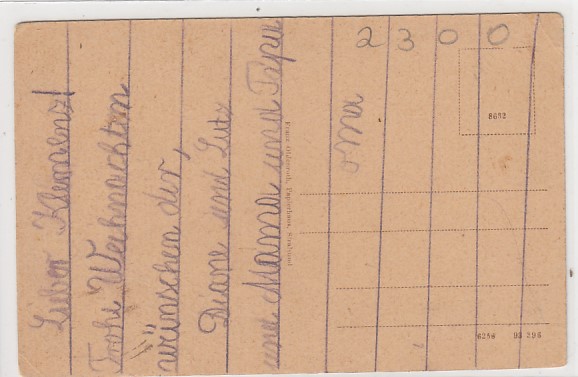 Lieber Klemenz!
Frohe Weihnachten
wünschen dir,
Diane und Lutz
und Mama und Papa
oma
2300
8632
6256 93 395